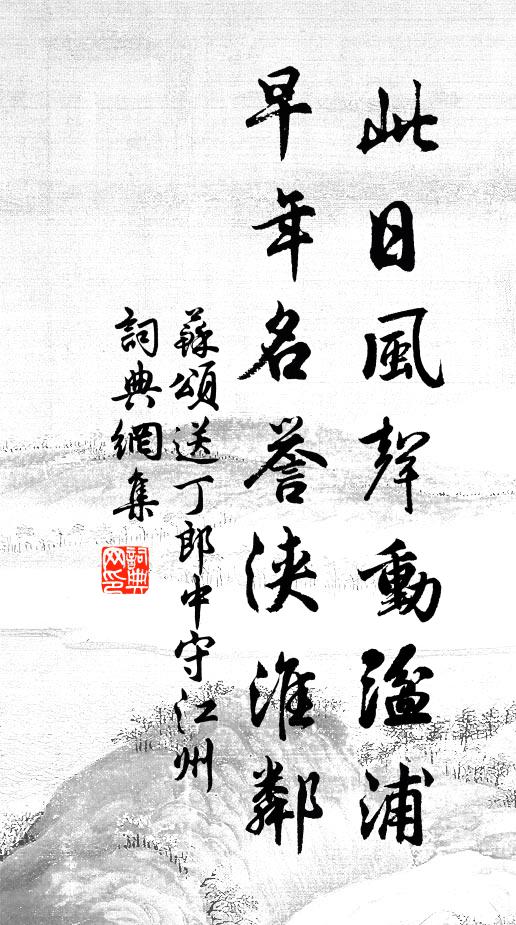 此日風聲動湓浦
早年名譽浹淮鄰
蘇頌送丁郎中守江州
詞典網集
詞典网印